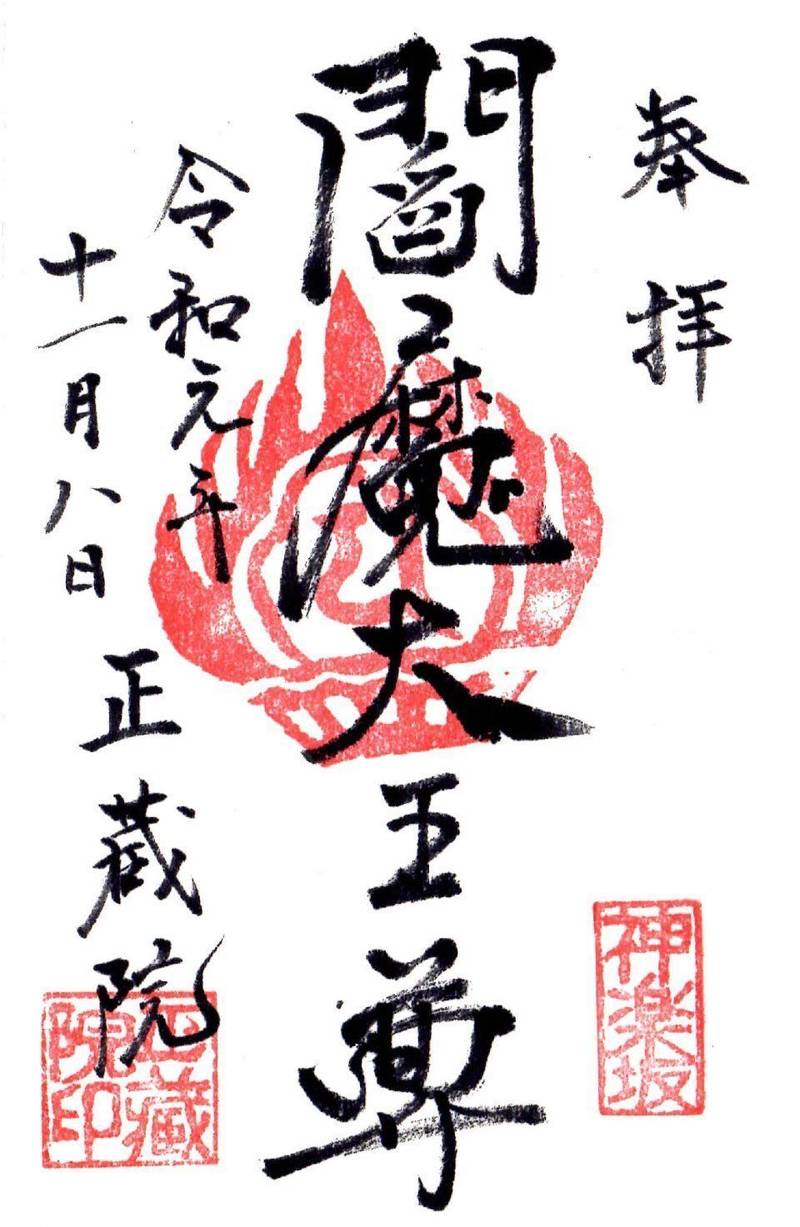 奉拝
神楽坂
閻魔大王尊
令和元年
十一月八日
正蔵院
正藏院印